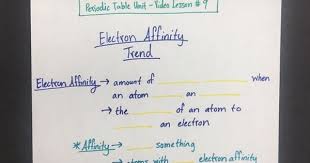 Periodic Table Unit - Video Lesson # 9
Electron Affinity
Trend
Electron Affinity → amount of ___ when
an atom ___ an ___
→ the ___ of an atom to
___ an electron
* Affinity → ___ something
atoms with ___ electron affinity